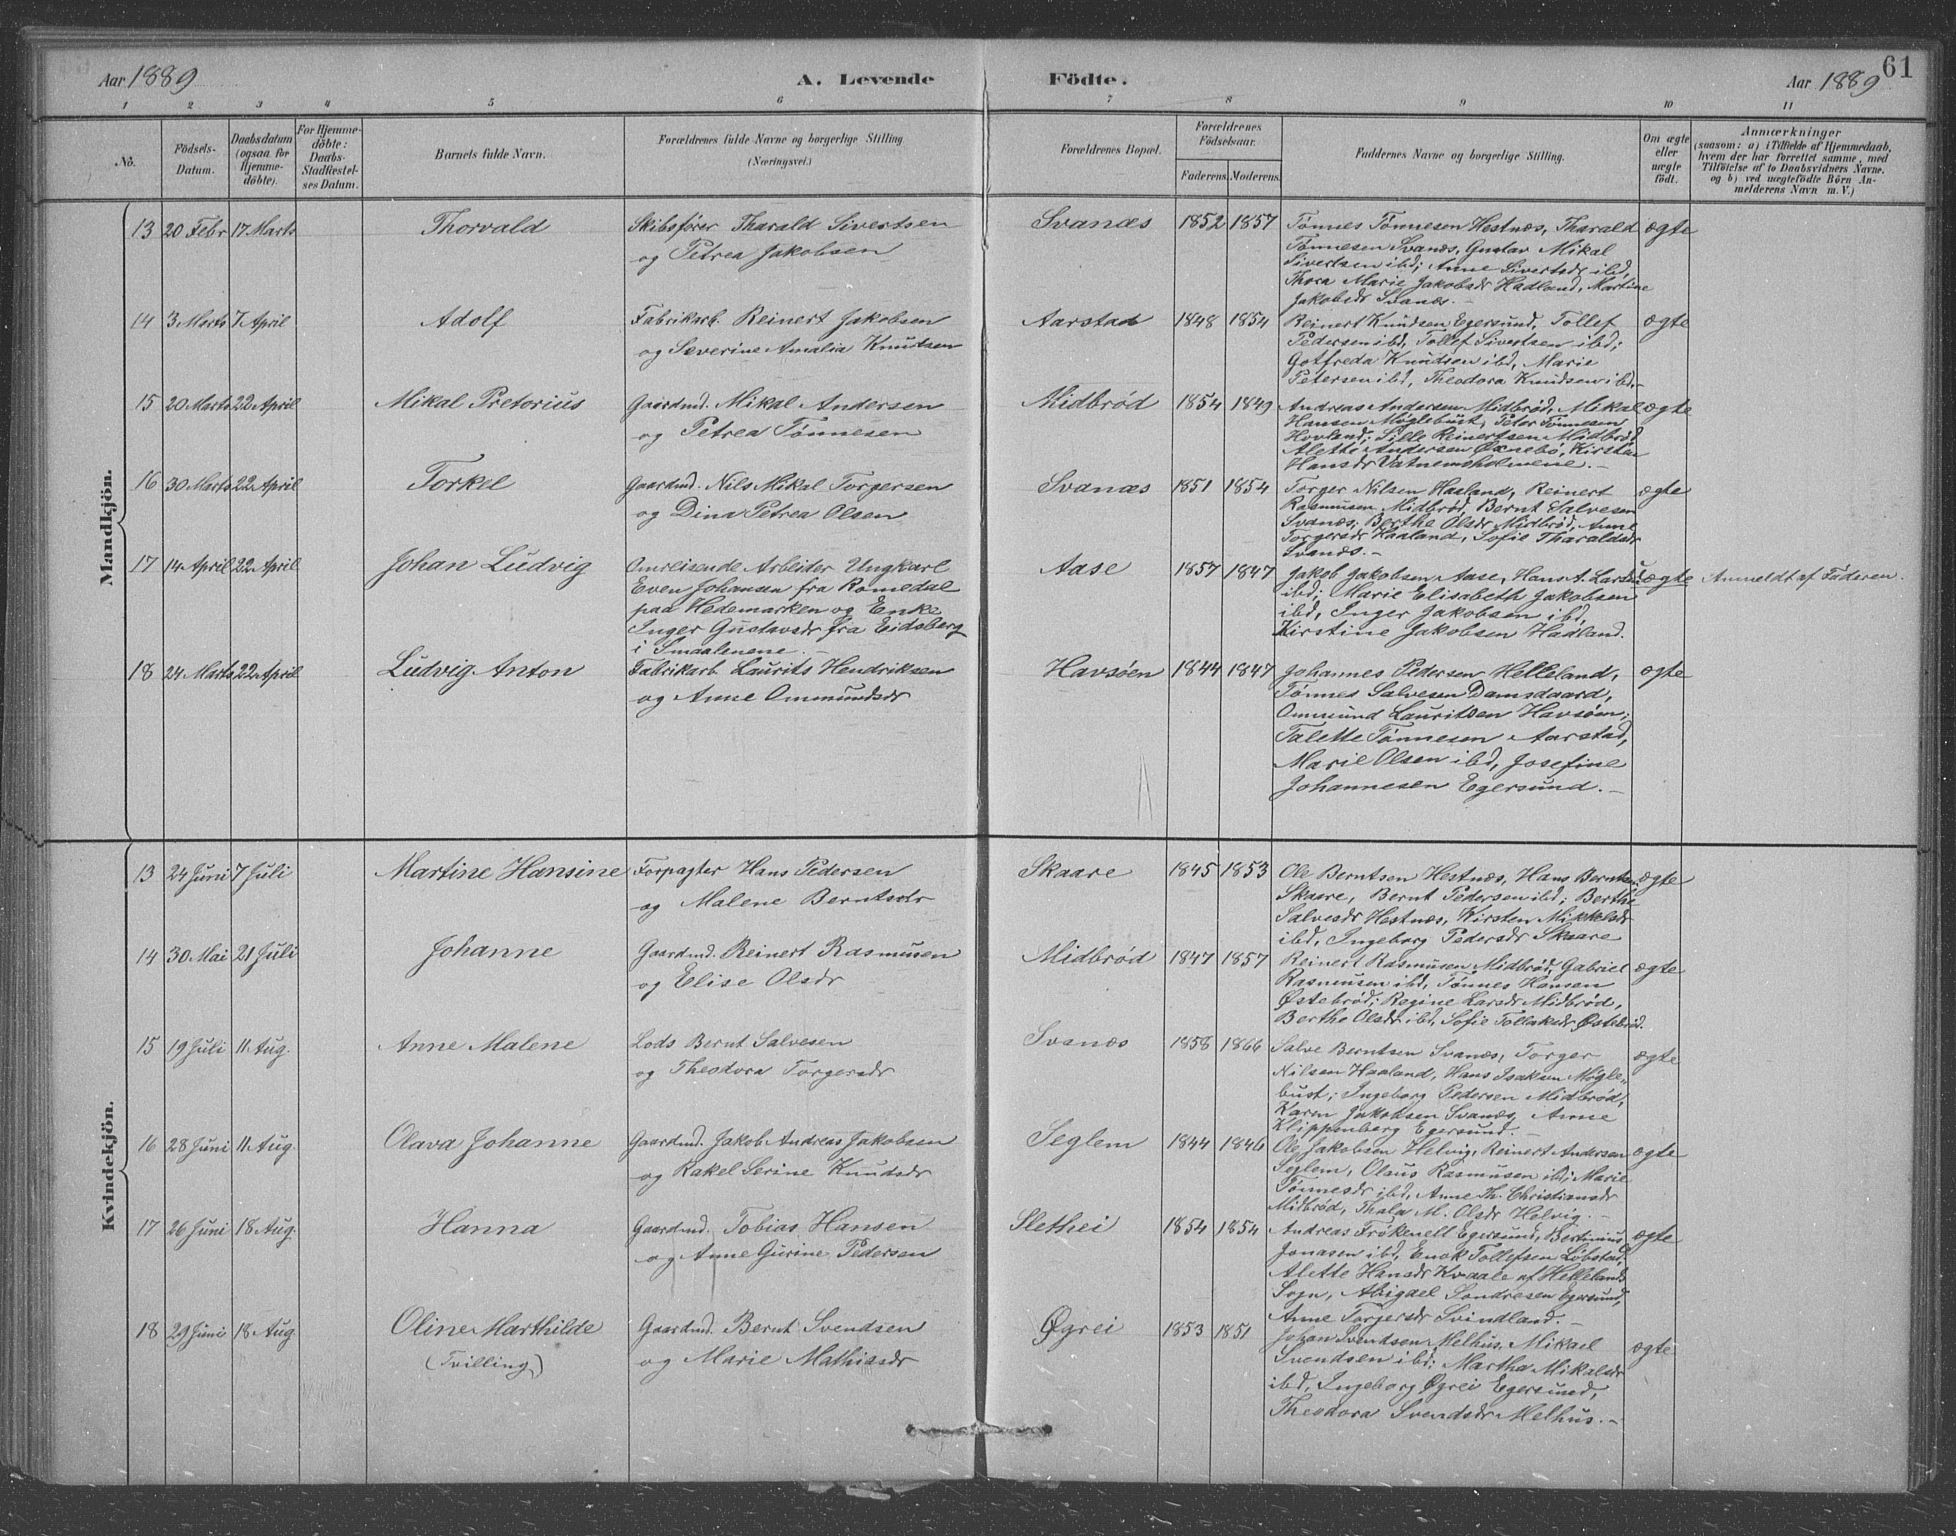 61
Aar 1889 A. Levende Födte. Aar 1889
1 2 3 4 5 6 7 8 9 10 11
No. Födsels-Datum. Daabsdatum (ogsaa for Hjemme-döbte). For Hjemme-döbte: Daabs-Stadfæstel-ses Datum. Barnets fulde Navn. Forældrenes fulde Navne og borgerlige Stilling (Næringsvei.) Forældrenes Bopæl. Forældrenes Födselsaar. Faderens. Moderens. Faddernes Navne og borgerlige Stilling. Om ægte eller uægte födt. Anmærkninger (saasom: a) i Tilfælde af Hjemmedaab, hvem der har forrettet samme, med Tilföielse af to Daabsvidners Navne. og b) ved uægtefödte Börn An-melderens Navn m. V.)
Mandkjön.
13 20 Febr 17 Marts Thorvald Skibsfører Tharald Sivertsen Svanæs 1852 1857 Tønnes Tønnesen Hestnæs, Tharald ægte
og Petrea Jakobsen Tønnesen Svanæs, Gustav Mikal
Sivertsen ibd; Anne Sivertsdr ibd,
Thora Marie Jakobsdr Hadland, Martine
Jakobsdr Svanæs.-
14 3 Marts 7 April Adolf Fabrikarb. Reinert Jakobsen Aarstad 1848 1854 Reinert Knudsen Egersund, Tollef ægte
og Severine Amalia Knudsen Pedersen ibd, Tollef Sivertsen ibd;
Gotfreda Knudsen ibd, Marie
Petersen ibd, Theodora Knudsen ibd.-
15 20 Marts 22 April Mikal Pretorius Gaardmd. Mikal Andersen Midbrød 1854 1849 Andreas Andersen Midbrød, Mikal ægte
og Petrea Tønnesen Hansen Møglebust, Peter Tønnesen
Hovland; Sille Reinertsen Midbrød
Alette Andersen Øxnebø, Kirsten
Hansdr Vatnemsholmene.-
16 30 Marts 22 April Torkel Gaardmd. Nils Mikal Torgersen Svanæs 1851 1854 Torger Nilsen Haaland, Reinert ægte
og Dina Petrea Olsen Rasmusen Midbrød, Bernt Salvesen
Svanæs; Berthe Olsdr Midbrød, Anne
Torgersdr Haaland, Sofie Tharaldsdr
Svanæs.-
17 14 April 22 April Johan Ludvig Omreisende Arbeider Ungkarl Aase 1857 1847 Jakob Jakobsen Aase, Hans A. Larsen uægte Anmeldt af Faderen.
Even Johansen fra Romedal ibd; Marie Elisabeth Jakobsen
paa Hedemarken og Enke ibd, Inger Jakobsen ibd,
Inger Gustavsdr fra Eidsberg Kirstine Jakobsen Hadland.
i Smaalenene.-
18 24 Marts 22 April Ludvig Anton Fabrikarb. Laurits Hendriksen Havsøen 1844 1847 Johannes Pedersen Helleland, ægte
og Anne Ommundsdr Tønnes Salvesen Damsgaard,
Ommund Lauritsen Havsøen;
Talette Tønnesen Aarstad,
Marie Olsen ibd, Josefine
Johannesen Egersund.-
Kvindekjön.
13 24 Juni 7 Juli Martine Hansine Forpagter Hans Pedersen Skaare 1845 1853 Ole Berntsen Hestnæs, Hans Berntsen ægte
og Malene Berntsdr Skaare, Bernt Pedersen ibd; Berthe
Salvesdr Hestnæs, Kirsten Mikkelsdr
ibd, Ingeborg Pedersdr Skaare
14 30 Mai 21 Juli Johanne Gaardmd. Reinert Rasmusen Midbrød 1847 1857 Reinert Rasmusen Midbrød, Gabriel ægte
og Elise Olsdr Rasmusen ibd, Tønnes Hansen
Østebrød; Regine Larsdr Midbrød,
Berthe Olsdr ibd, Sofie Tollaksdr Østebrød.
15 19 Juli 11 Aug. Anne Malene Lods Bernt Salvesen Svanæs 1858 1866 Salve Berntsen Svanæs, Torger ægte
og Theodora Torgersdr Nilsen Haaland, Hans Isaksen Møgle-
bust; Ingeborg Pedersen Midbrød,
Karen Jakobsen Svanæs, Anne
Klippenberg Egersund.-
16 28 Juni 11 Aug. Olava Johanne Gaardmd. Jakob Andreas Jakobsen Seglem 1844 1846 Ole Jakobsen Helvig, Reinert Andersen ægte
og Rakel Serine Knudsdr Seglem, Olaus Rasmusen ibd; Marie
Tønnesdr ibd, Anne Th. Christiansdr
Midbrød, Thala M. Olsdr Helvig.-
17 26 Juni 18 Aug. Hanna Gaardmd. Tobias Hansen Slethei 1854 1854 Andreas Frøkenelt Egersund, Bertinius ægte
og Anne Gurine Pedersen Jonasen ibd, Enok Tollefsen Løbstad,
Alette Hansdr Kvaale af Hellelands
Sogn, Abigael Sondresen Egersund,
Anne Torgersdr Svindland.-
18 29 Juni 18 Aug Oline Marthilde Gaardmd. Bernt Svendsen Øgrei 1853 1851 Johan Svendsen Melhus, Mikael ægte
(Tvilling) og Marie Mathiasdr Svendsen ibd; Martha Mikalsdr
ibd, Ingeborg Øgrei Egersund,
Theodora Svendsdr Melhus.-